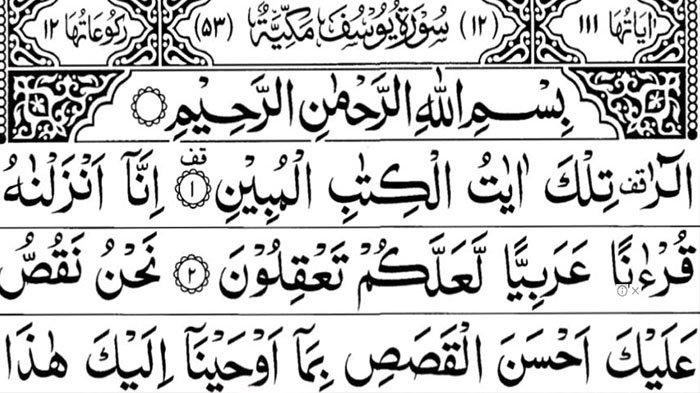 اٰيَاتُهَا ١١١ (١٢) سُوْرَةُ يُوْسُفَ مَكِّيَّةٌ (٥٣) رُكُوْعَاتُهَا ١٢
بِسْمِ اللهِ الرَّحْمٰنِ الرَّحِيْمِ
الٓرٰ قف تِلْكَ اٰيٰتُ الْكِتٰبِ الْمُبِيْنِ ١ قف اِنَّآ اَنْزَلْنٰهُ
قُرْءٰنًا عَرَبِيًّا لَّعَلَّكُمْ تَعْقِلُوْنَ ٢ نَحْنُ نَقُصُّ
عَلَيْكَ اَحْسَنَ الْقَصَصِ بِمَآ اَوْحَيْنَآ اِلَيْكَ هٰذَا